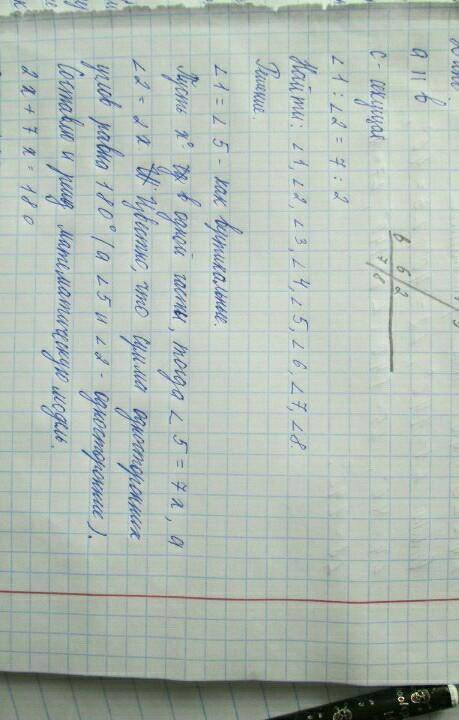 a || b
c - секущая
∠1 : ∠2 = 7 : 2
Найти: ∠1, ∠2, ∠3, ∠4, ∠5, ∠6, ∠7, ∠8.
Решение.
∠1 = ∠5 - как вертикальные.
Пусть x° в одной части, тогда ∠5 = 7x, а
∠2 = 2x. Известно, что сумма односторонних
углов равна 180° (а ∠5 и ∠2 - односторонние).
Составлю и решу математическую модель.
2x + 7x = 180
b
6 2
7 8